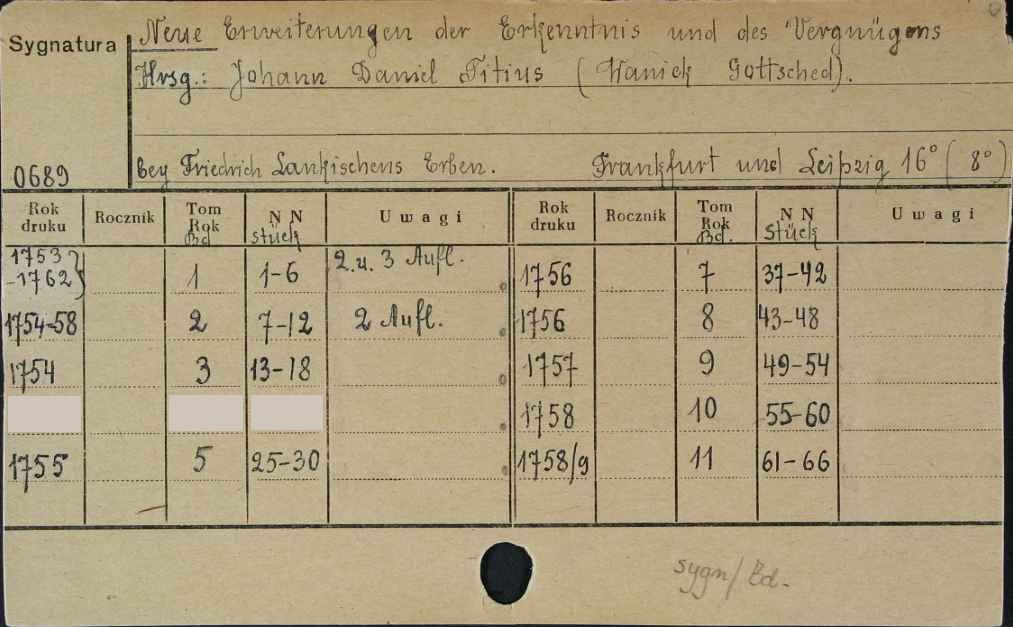 Sygnatura
Neue Erweiterungen der Erkenntnis und des Vergnügens
Hrsg.: Johann Daniel Titius (Wanick Gottsched).
0689
bey Friedrich Lankischens Erben. Frankfurt und Leipzig 16° (8°)
Rok druku Rocznik Tom Rok Bd. NN Stück Uwagi Rok druku Rocznik Tom Rok Bd. NN Stück Uwagi
1753-1762} 1 1-6 2.u.3 Aufl. 1756 7 37-42
1754-58 2 7-12 2 Aufl. 1756 8 43-48
1754 3 13-18 1757 9 49-54
1758 10 55-60
1755 5 25-30 1758/9 11 61-66
sygn/Bd.